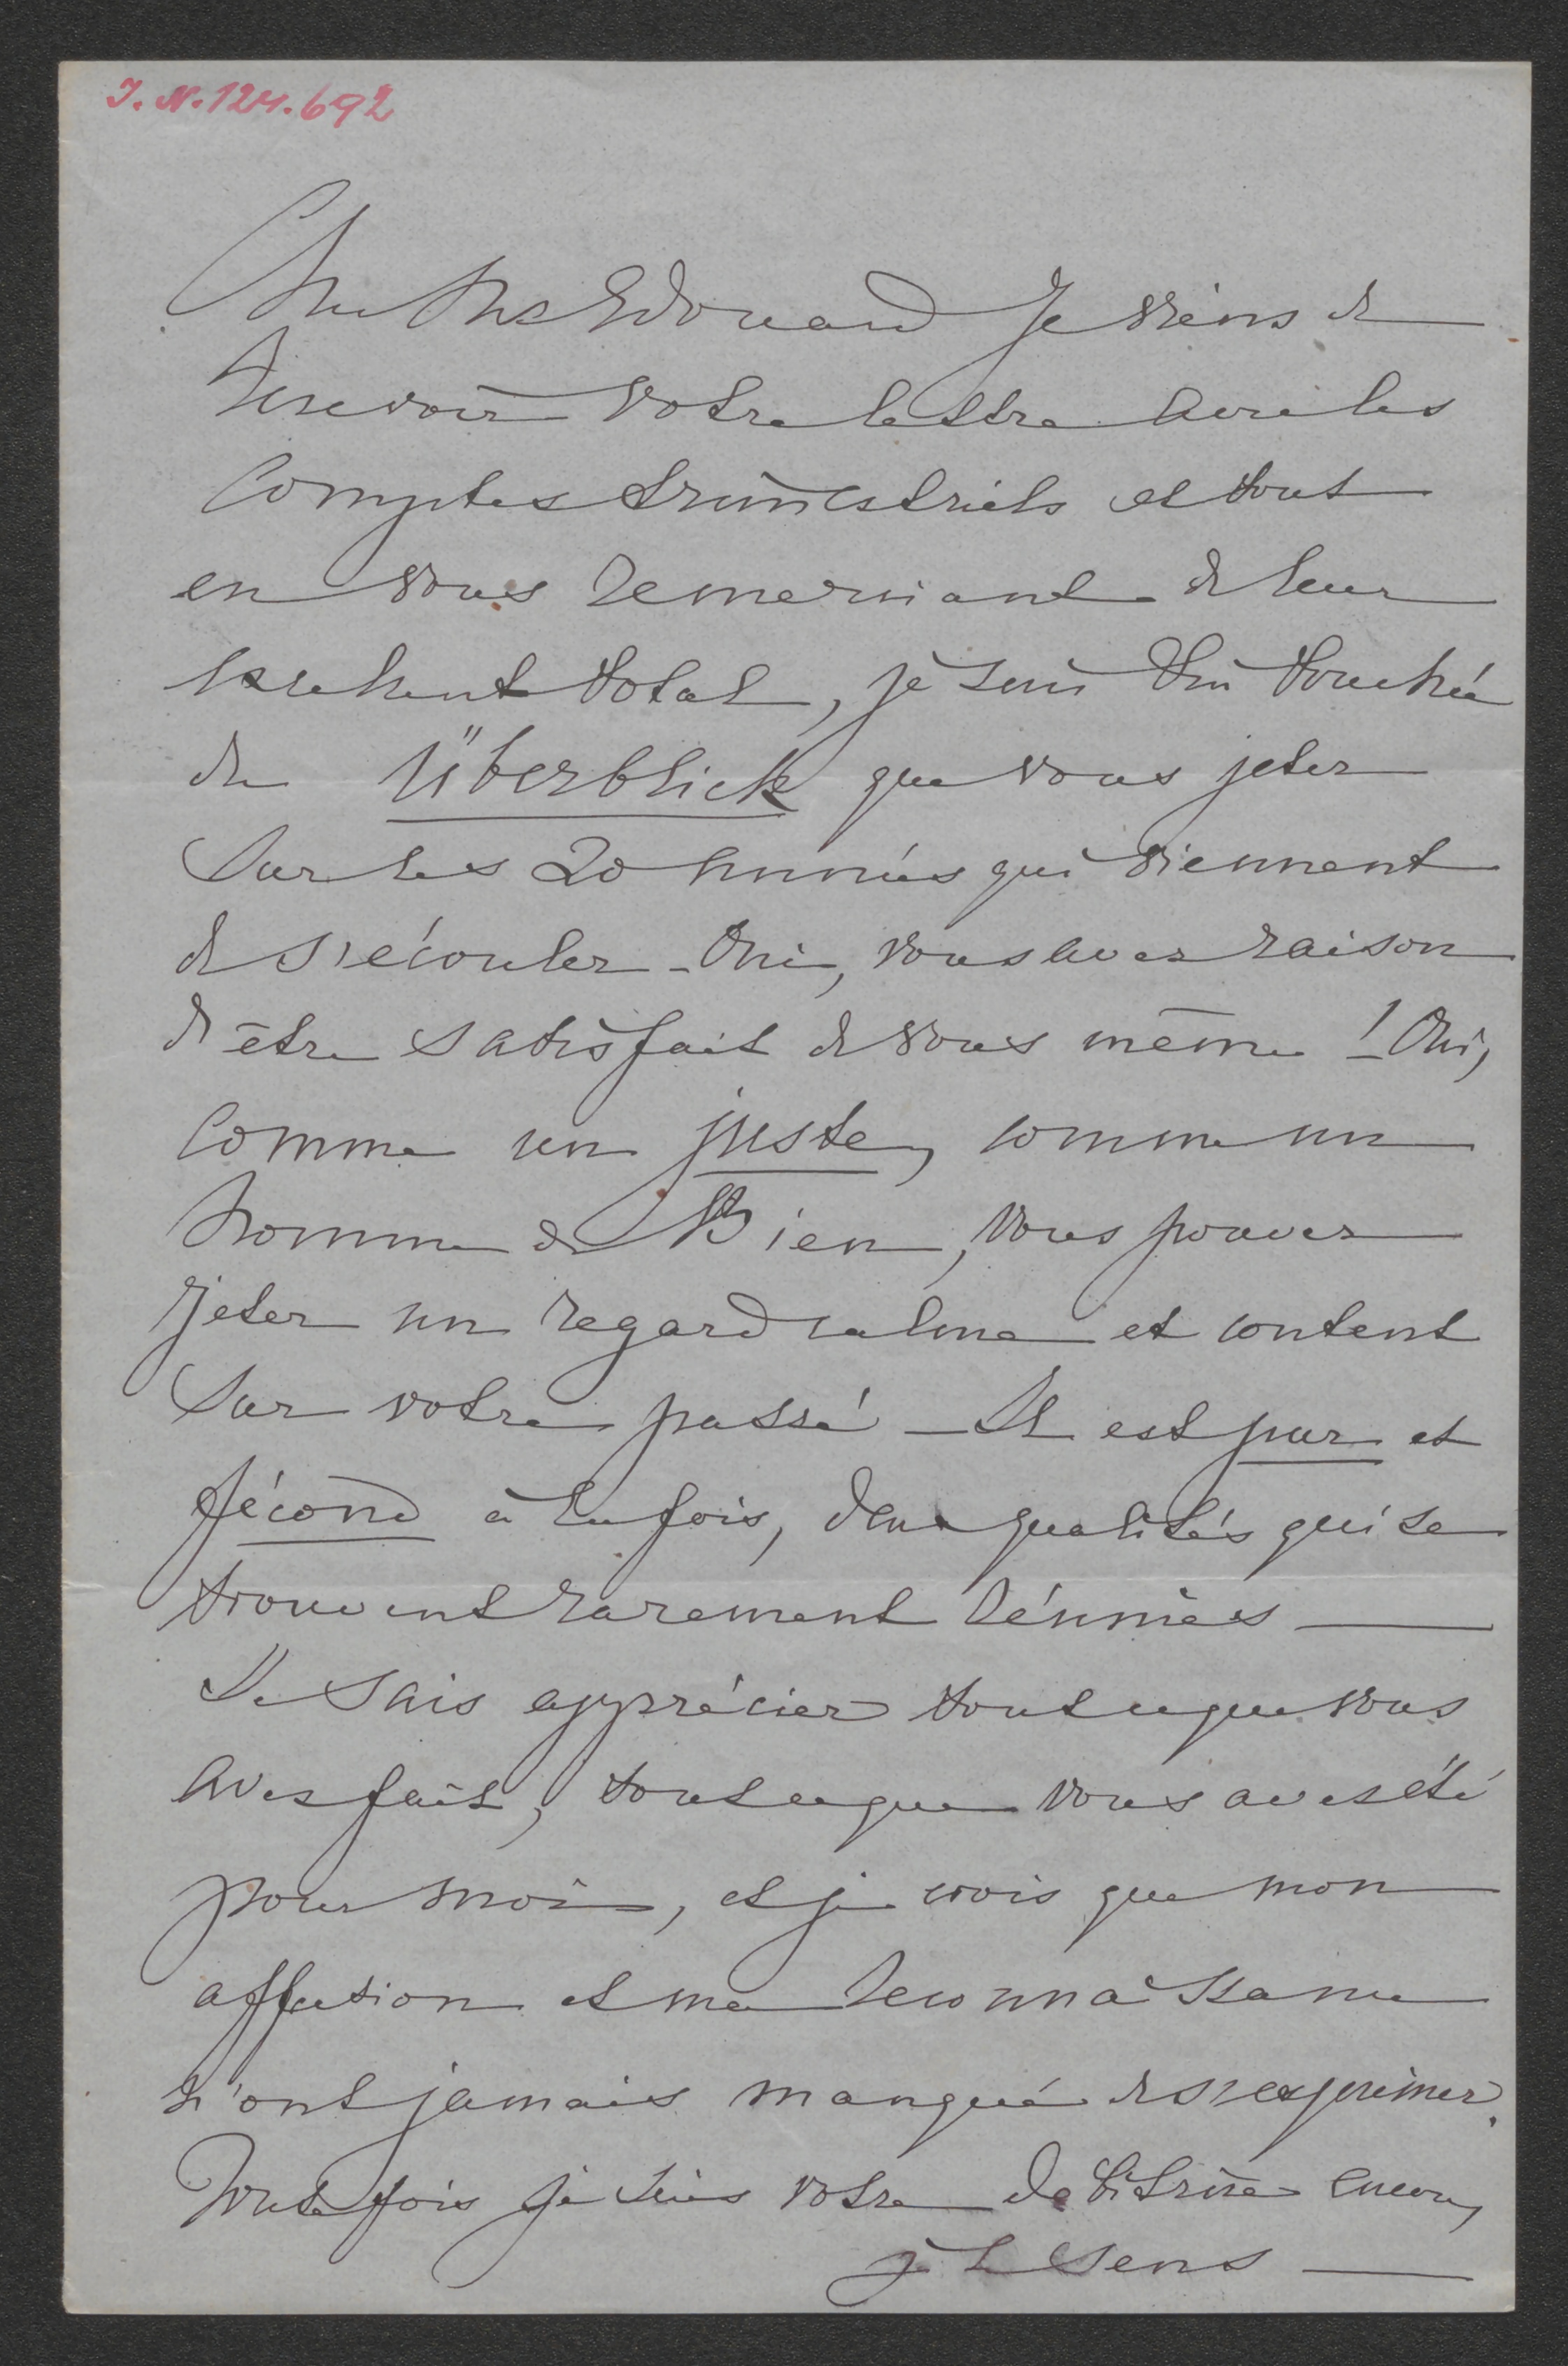 I. N. 124.692
Cher Mr Edouard je viens de
recevoir votre lettre avec les
comptes trimestriels et tout
en vous remerciant de leur
excellent total, je suis très touchée
du Überblick que vous jetez
sur les 20 années qui viennent
de s'écouler – Oui, vous avez raison
d'être satisfait de vous même ! Oui,
comme un juste, comme un
homme de Bien, vous pouvez
jeter un regard calme et content
sur votre passé – Il est pur et
fécond à la fois, deux qualités qui se
trouvent rarement réunies —
Je sais apprécier tout ce que vous
avez fait, tout ce que vous avez été
pour moi, et je crois que mon
affection et ma reconnaissance
n'ont jamais manqué de s'exprimer.
Toutefois je suis votre débitrice encore,
je le sens —